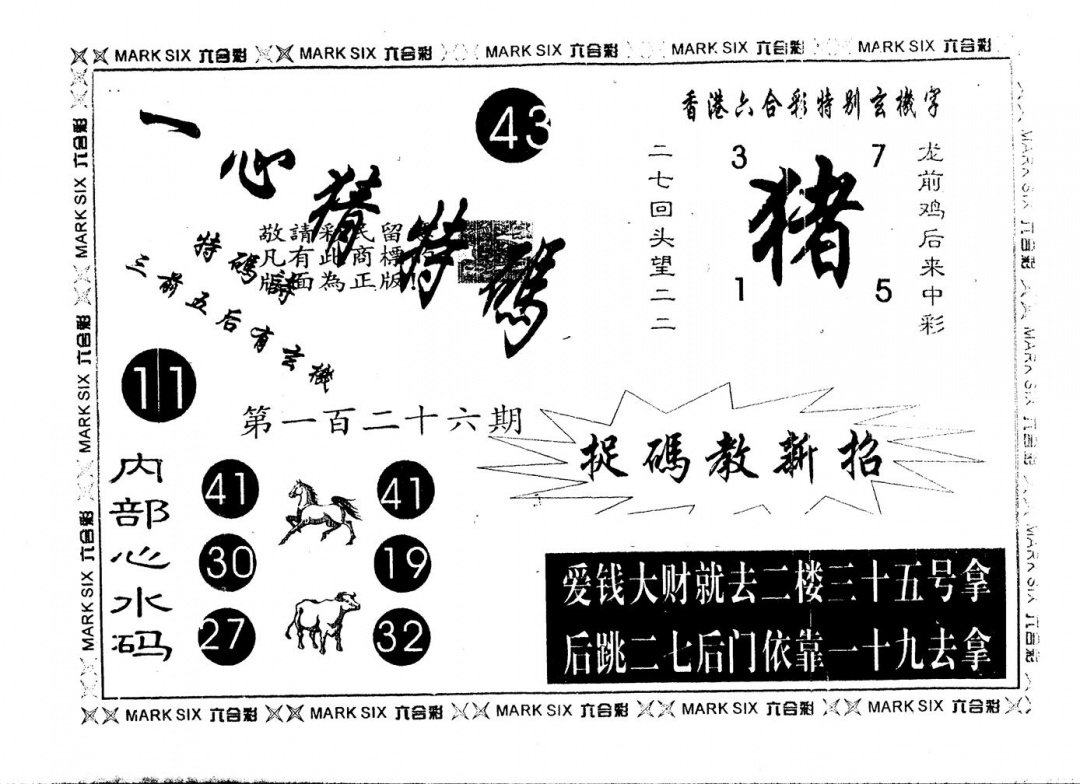 MARK SIX 六合彩 MARK SIX 六合彩 MARK SIX 六合彩 MARK SIX 六合彩 MARK SIX 六合彩
一心猜特碼
43
香港六合彩特别玄機字
二七回头望二二
3 7
猪
1 5
龙前鸡后来中彩
敬請彩民留
凡有此商標
版面為正版!
特碼詩
三前五后有玄機
11
第一百二十六期
捉碼教新招
内部心水码
41 41
30 19
27 32
爱钱大财就去二楼三十五号拿
后跳二七后门依靠一十九去拿
MARK SIX 六合彩 MARK SIX 六合彩 MARK SIX 六合彩
MARK SIX 六合彩 MARK SIX 六合彩 MARK SIX 六合彩
MARK SIX 六合彩 MARK SIX 六合彩 MARK SIX 六合彩 MARK SIX 六合彩 MARK SIX 六合彩